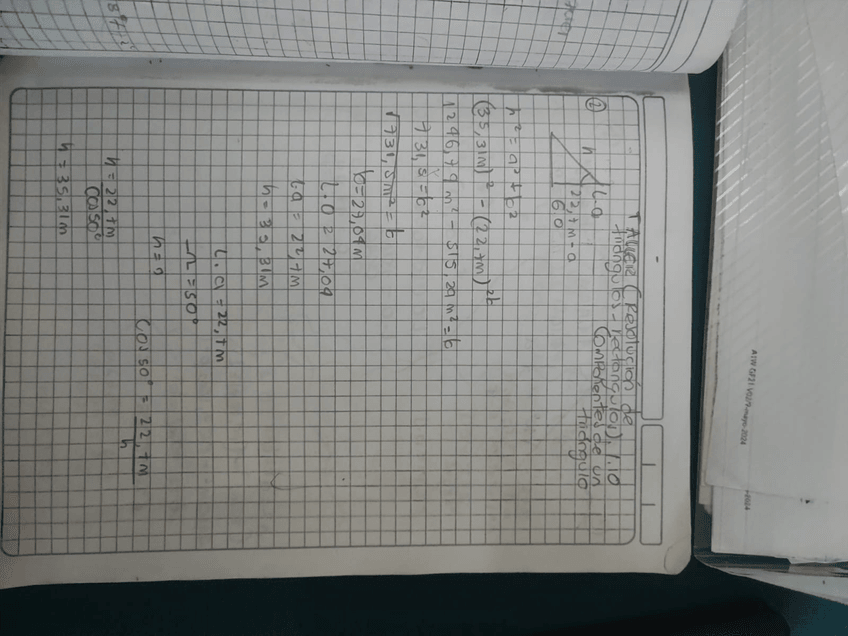 TALLER (Resolución de
triángulos - rectángulo), 1.10
Componentes de un
triángulo
②
h
L.O
22,7m - a
60
h² = a² + b²
(35,31m)² - (22,7m)²
1246,79 m² - 515,29 m² = b
731,5 = b²
√731,5m² = b
b = 27,04m
L.O = 27,04
La = 22,7m
h = 35,31m
L.a = 22,7m
= 50°
Cos 50° = 22,7m
h
h = 22,7m
Cos50°
h = 35,31m
ATWGF21-V02/mayo-2024
-2024